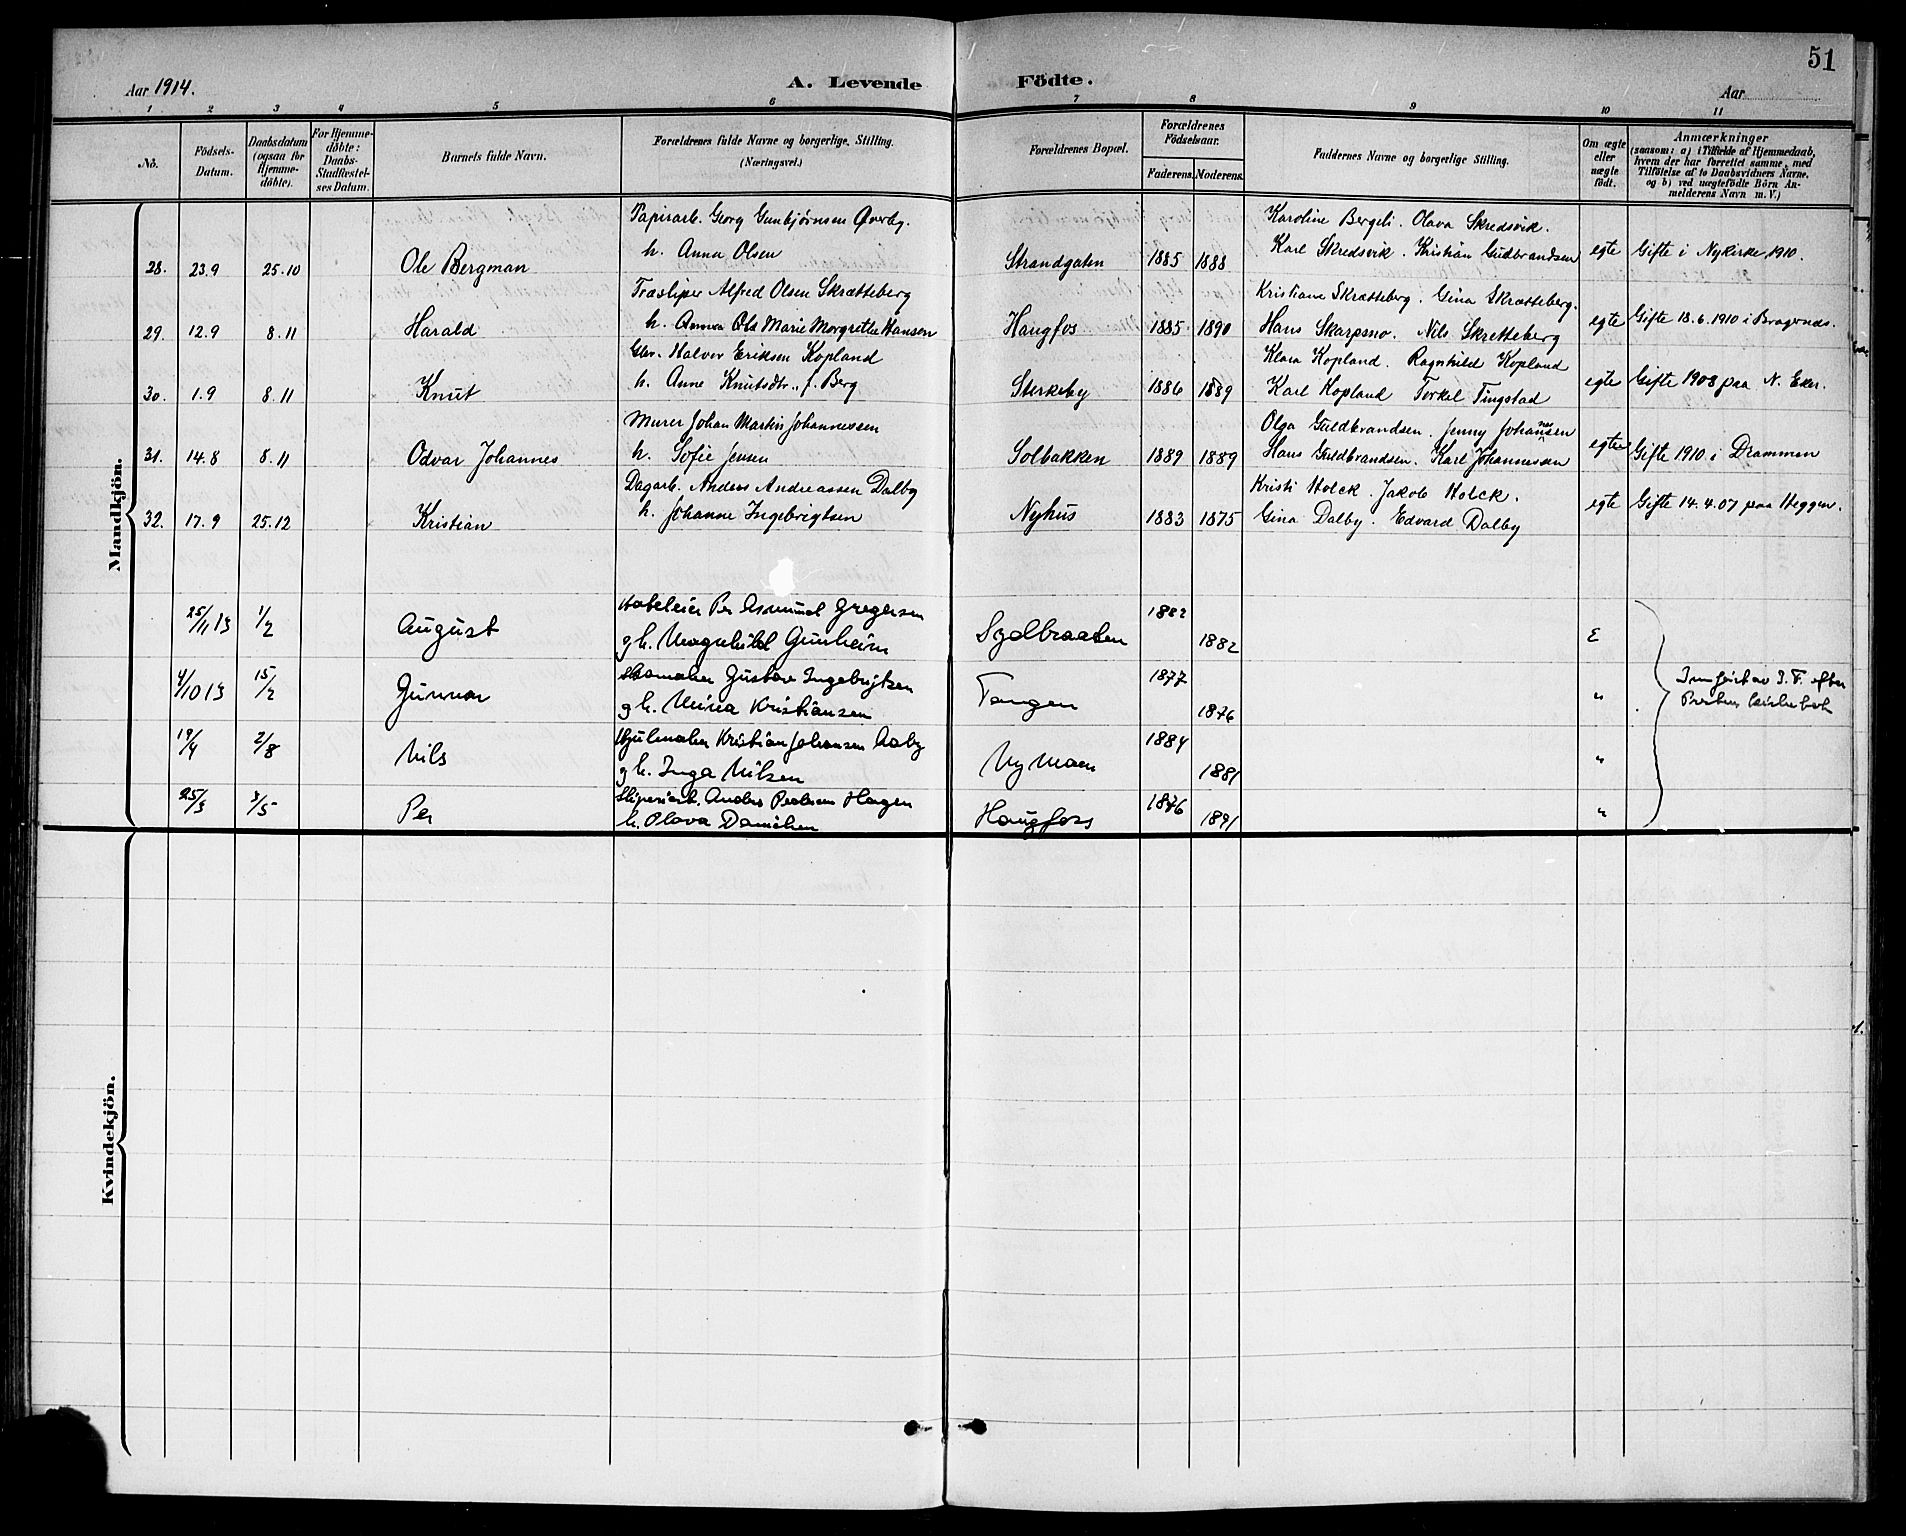 51
Aar 1914.
A. Levende Födte.
Aar
1 2 3 4 5 6 7 8 9 10 11
No.
Födsels-Datum.
Daabsdatum (ogsaa for Hjemme-döbte).
For Hjemme-döbte: Daabs-Stadfæstel-ses Datum.
Barnets fulde Navn.
Forældrenes fulde Navne og borgerlige Stilling. (Næringsvei.)
Forældrenes Bopæl.
Forældrenes Födselsaar.
Faderens.
Moderens.
Faddernes Navne og borgerlige Stilling.
Om ægte eller uægte födt.
Anmærkninger
(saasom: a) i Tilfælde af Hjemmedaab, hvem der har forrettet samme, med Tilföielse af to Daabsvidners Navne, og b) ved uægtefödte Börn Anmelderens Navn m. V.)
Mandkjön.
Papirarb. Georg Gunbjørnsen Øverby. Karoline Bergeli. Olava Skredsvik.
28. 23.9 25.10 Ole Bergman h. Anna Olsen Strandgaten 1885 1888 Karl Skredsvik. Kristian Gudbrandsen egte Gifte i Nykirke 1910.
Træsliper Alfred Olsen Skrætteberg Kristiane Skrætteberg. Gina Skrætteberg.
29. 12.9 8.11 Harald h. Anna Ols Marie Margrethe Hansen Haugfos 1885 1890 Hans Skarpsno. Nils Skretteberg egte Gifte 18.6.1910 i Bragernes.
Halvor Eriksen Kopland Klara Kopland. Ragnhild Kopland
30. 1.9 8.11 Knut h. Anne Knutsdtr. f. Berg Sterkeby 1886 1889 Karl Kopland Torkel Tingstad egte Gifte 1908 paa N. Eker.
Murer Johan Martin Johannessen Olga Guldbrandsen. Jenny Johannesen
31. 14.8 8.11 Odvar Johannes h. Sofie Jensen Solbakken 1889 1889 Hans Guldbrandsen. Karl Johannessen egte Gifte 1910 i Drammen
Dagarb. Anders Andreassen Dalby Kristi Holck. Jakob Holck.
32. 17.9 25.12 Kristian h. Johanne Ingebrigtsen Nyhus 1883 1875 Gina Dalby. Edvard Dalby egte Gifte 14.4.07 paa Heggen.
Per Asmund Gregersen 1882
25/11 13 1/2 August g h. Magnhild Gunheim 1882 E
Skomaker Gustav Ingebrigtsen 1877
4/10 13 15/2 Gunnar g h. Mina Kristiansen Tangen 1876 "
Indført av efter Prestens kirkebok
Hjulmaker Kristian Johansen Aaby 1884
19/4 2/8 Nils g h. Inga Nilsen Ny Moen 1881 "
Sliperiarb. Anders Pedersen Hagen 1876
25/3 3/5 Per h. Olava Haugfoss 1891 "
Kvindekjön.